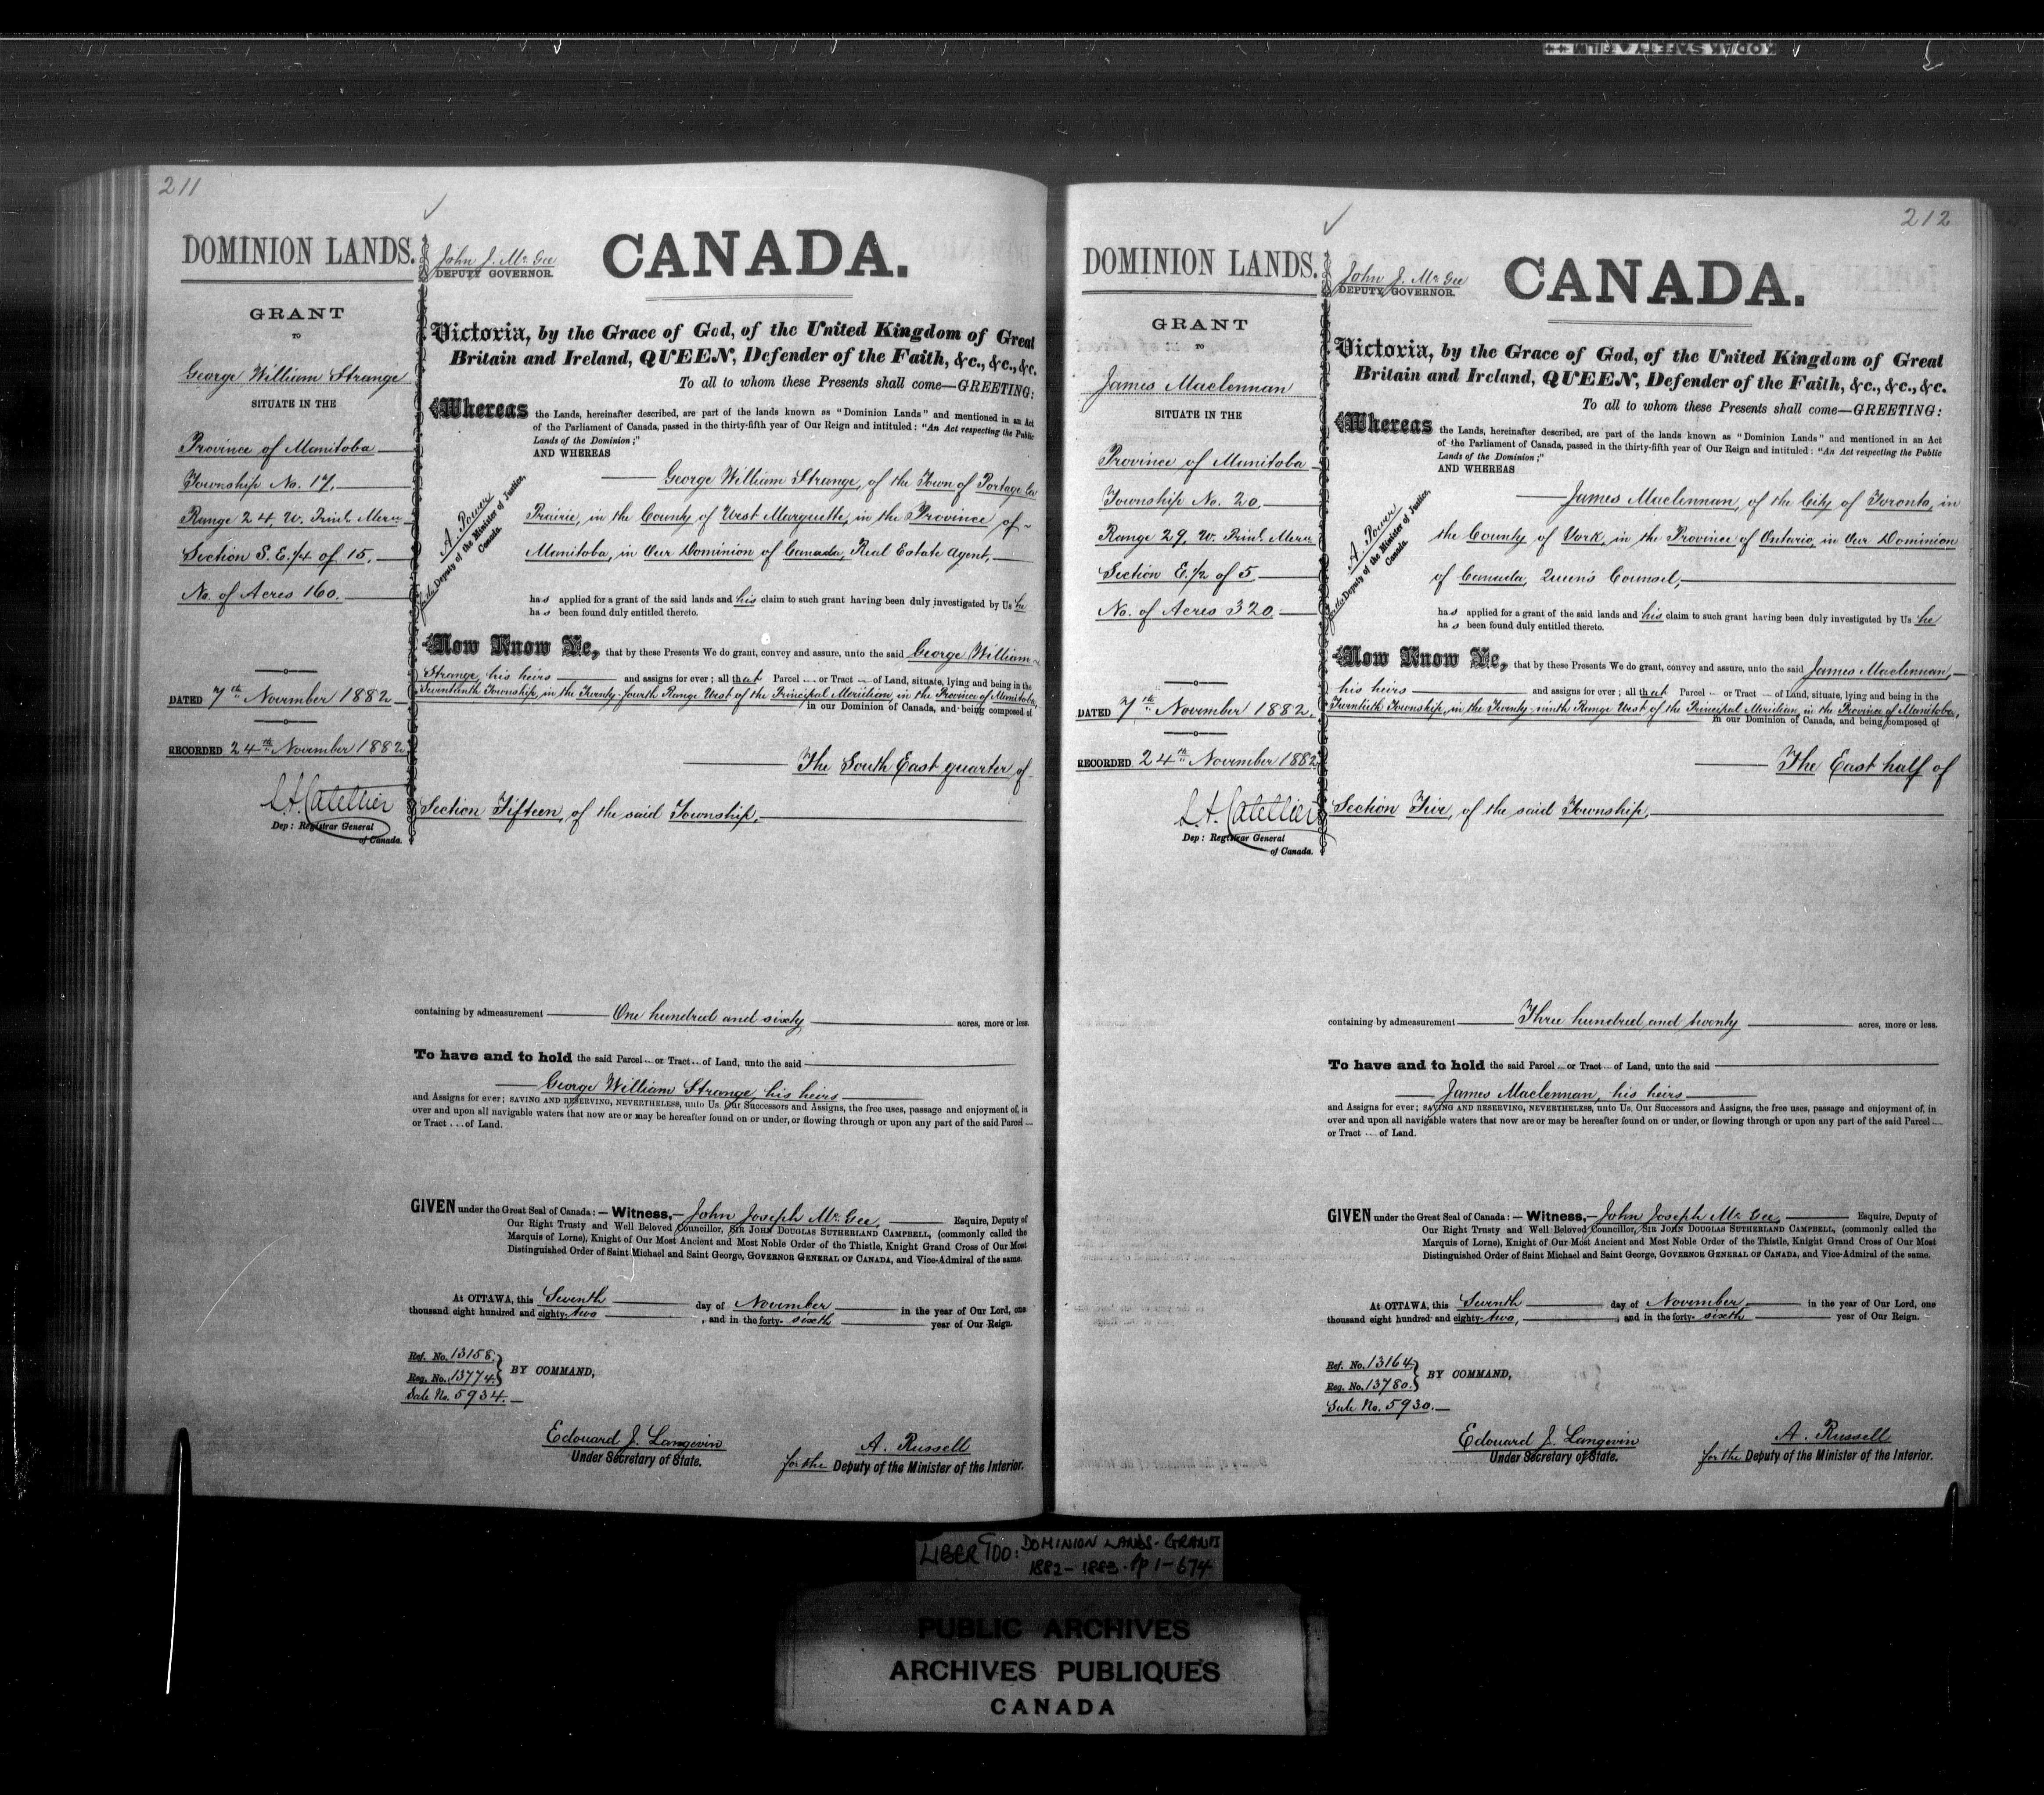 KODAK SAFETY FILM ++
211
DOMINION LANDS.
GRANT
TO
George William Strange
SITUATE IN THE
Province of Manitoba
Township No. 17,
Range 24, W. Prinl. Mern
Section S. E. 1/4 of 15,
No. of Acres 160.
DATED 7th November 1882
RECORDED 24th November 1882
L. A. Catellier
Dep: Registrar General
of Canada.
John J. McGee
DEPUTY GOVERNOR.
CANADA.
A. Power
for the Deputy of the Minister of Justice,
Canada.
Victoria, by the Grace of God, of the United Kingdom of Great
Britain and Ireland, QUEEN, Defender of the Faith, &c., &c., &c.
To all to whom these Presents shall come—GREETING:
Whereas the Lands, hereinafter described, are part of the lands known as "Dominion Lands" and mentioned in an Act
of the Parliament of Canada, passed in the thirty-fifth year of Our Reign and intituled: "An Act respecting the Public
Lands of the Dominion;"
AND WHEREAS
George William Strange, of the Town of Portage la
Prairie, in the County of West Marquette, in the Province of
Manitoba, in Our Dominion of Canada, Real Estate Agent,
has applied for a grant of the said lands and his claim to such grant having been duly investigated by Us he
has been found duly entitled thereto.
Now Know Ye, that by these Presents We do grant, convey and assure, unto the said George William
Strange, his heirs and assigns for ever; all that Parcel or Tract of Land, situate, lying and being in the
Seventeenth Township, in the Twenty-fourth Range West of the Principal Meridian, in the Province of Manitoba,
in our Dominion of Canada, and being composed of
The South East quarter of
Section Fifteen, of the said Township,
containing by admeasurement One hundred and sixty acres, more or less.
To have and to hold the said Parcel or Tract of Land, unto the said
George William Strange, his heirs
and Assigns for ever; SAVING AND RESERVING, NEVERTHELESS, unto Us. Our Successors and Assigns, the free uses, passage and enjoyment of, in
over and upon all navigable waters that now are or may be hereafter found on or under, or flowing through or upon any part of the said Parcel
or Tract of Land.
GIVEN under the Great Seal of Canada:—Witness,—John Joseph McGee, Esquire, Deputy of
Our Right Trusty and Well Beloved Councillor, SIR JOHN DOUGLAS SUTHERLAND CAMPBELL, (commonly called the
Marquis of Lorne), Knight of Our Most Ancient and Most Noble Order of the Thistle, Knight Grand Cross of Our Most
Distinguished Order of Saint Michael and Saint George, GOVERNOR GENERAL OF CANADA, and Vice-Admiral of the same.
At OTTAWA, this Seventh day of November in the year of Our Lord, one
thousand eight hundred and eighty-two, and in the forty-sixth year of Our Reign.
Ref. No. 13158.
Reg. No. 13774. BY COMMAND,
Sale No. 5934.
Edouard J. Langevin
Under Secretary of State.
A. Russell
for the Deputy of the Minister of the Interior.
212
DOMINION LANDS.
GRANT
TO
James Maclennan
SITUATE IN THE
Province of Manitoba
Township No. 20
Range 29, W. Prinl. Mern
Section E. 1/2 of 5
No. of Acres 320
DATED 7th November 1882.
RECORDED 24th November 1882
L. A. Catellier
Dep: Registrar General
of Canada.
John J. McGee
DEPUTY GOVERNOR.
CANADA.
A. Power
for the Deputy of the Minister of Justice,
Canada.
Victoria, by the Grace of God, of the United Kingdom of Great
Britain and Ireland, QUEEN, Defender of the Faith, &c., &c., &c.
To all to whom these Presents shall come—GREETING:
Whereas the Lands, hereinafter described, are part of the lands known as "Dominion Lands" and mentioned in an Act
of the Parliament of Canada, passed in the thirty-fifth year of Our Reign and intituled: "An Act respecting the Public
Lands of the Dominion;"
AND WHEREAS
James Maclennan, of the City of Toronto, in
the County of York, in the Province of Ontario, in Our Dominion
of Canada, Queen's Counsel,
has applied for a grant of the said lands and his claim to such grant having been duly investigated by Us he
has been found duly entitled thereto.
Now Know Ye, that by these Presents We do grant, convey and assure, unto the said James Maclennan,
his heirs and assigns for ever; all that Parcel or Tract of Land, situate, lying and being in the
Twentieth Township, in the Twenty-ninth Range West of the Principal Meridian, in the Province of Manitoba,
in our Dominion of Canada, and being composed of
The East half of
Section Five, of the said Township,
containing by admeasurement Three hundred and twenty acres, more or less.
To have and to hold the said Parcel or Tract of Land, unto the said
James Maclennan, his heirs
and Assigns for ever; SAVING AND RESERVING, NEVERTHELESS, unto Us. Our Successors and Assigns, the free uses, passage and enjoyment of, in
over and upon all navigable waters that now are or may be hereafter found on or under, or flowing through or upon any part of the said Parcel
or Tract of Land.
GIVEN under the Great Seal of Canada:—Witness,—John Joseph McGee, Esquire, Deputy of
Our Right Trusty and Well Beloved Councillor, SIR JOHN DOUGLAS SUTHERLAND CAMPBELL, (commonly called the
Marquis of Lorne), Knight of Our Most Ancient and Most Noble Order of the Thistle, Knight Grand Cross of Our Most
Distinguished Order of Saint Michael and Saint George, GOVERNOR GENERAL OF CANADA, and Vice-Admiral of the same.
At OTTAWA, this Seventh day of November in the year of Our Lord, one
thousand eight hundred and eighty-two, and in the forty-sixth year of Our Reign.
Ref. No. 13164.
Reg. No. 13780. BY COMMAND,
Sale No. 5930.
Edouard J. Langevin
Under Secretary of State.
A. Russell
for the Deputy of the Minister of the Interior.
LIBER 100: DOMINION LANDS-GRANTS
1882-1883. pp 1-674
PUBLIC ARCHIVES
ARCHIVES PUBLIQUES
CANADA